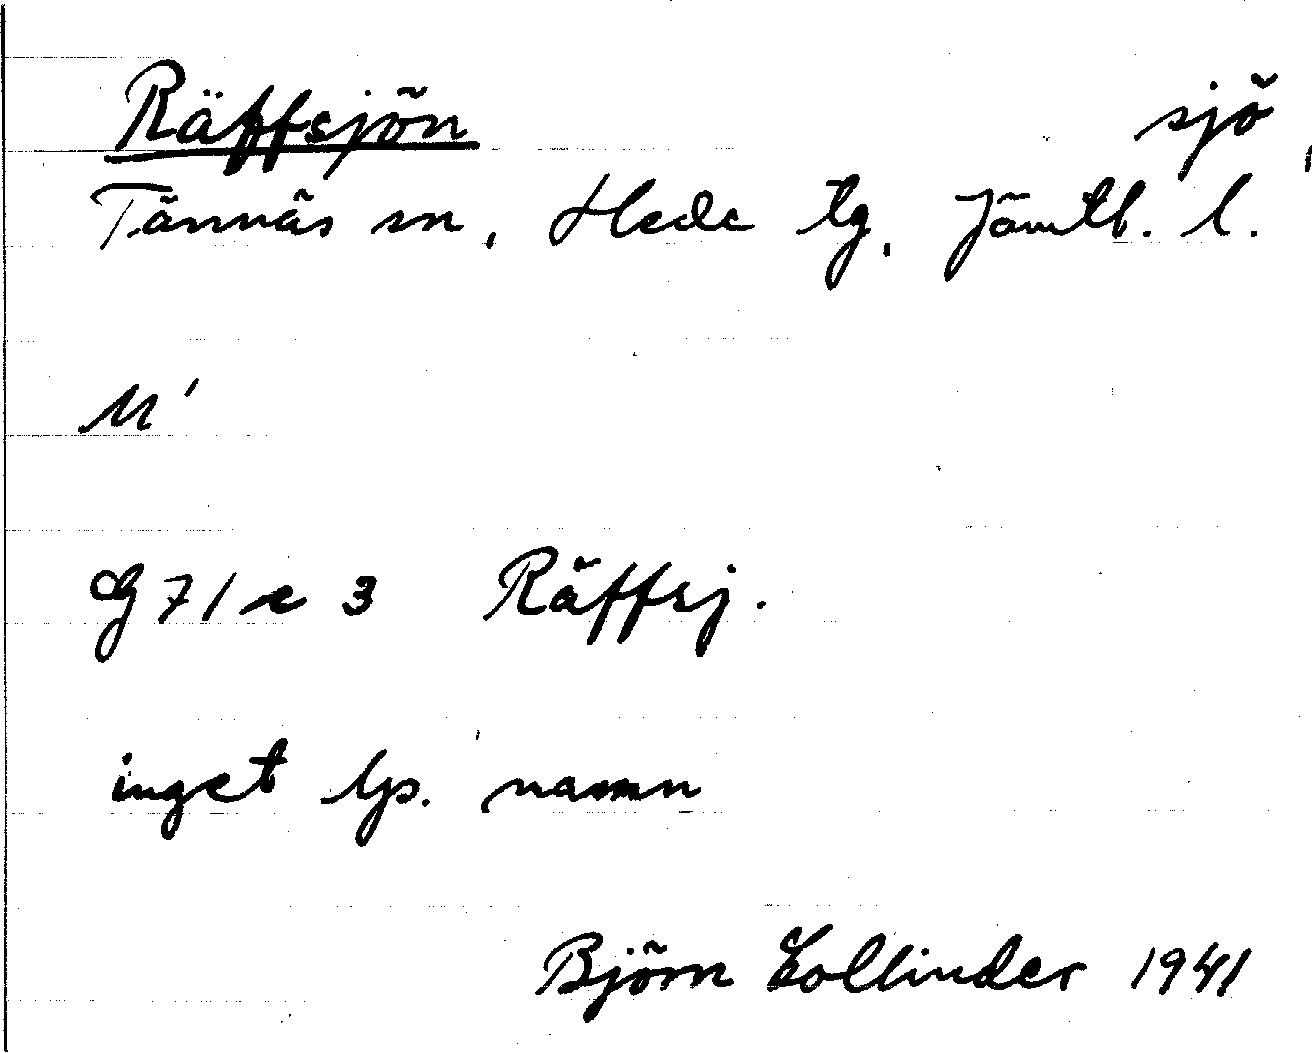 Räffsjön sjö
Tännäs sn, Hede tg, Jämtl. l.
M'
G 71 c 3 Räffsj.
inget lp. namn
Björn Collinder 1941